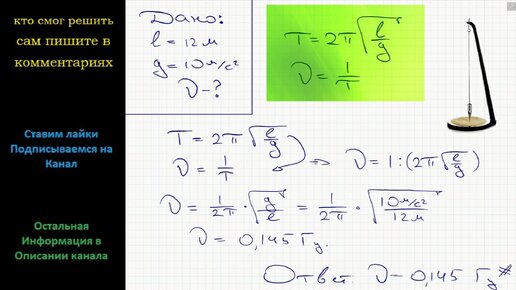 кто смог решить
сам пишите в
комментариях
Ставим лайки
Подписываемся на
Канал
Остальная
Информация в
Описании канала
Дано:
l = 12 м
g = 10 м/с²
ν - ?
T = 2π√(l/g)
ν = 1/T
T = 2π√(l/g)
ν = 1/T => ν = 1 : (2π√(l/g))
ν = 1/2π · √(g/l) = 1/2π · √(10 м/с²/12 м)
ν = 0,145 Гц.
Ответ: ν = 0,145 Гц